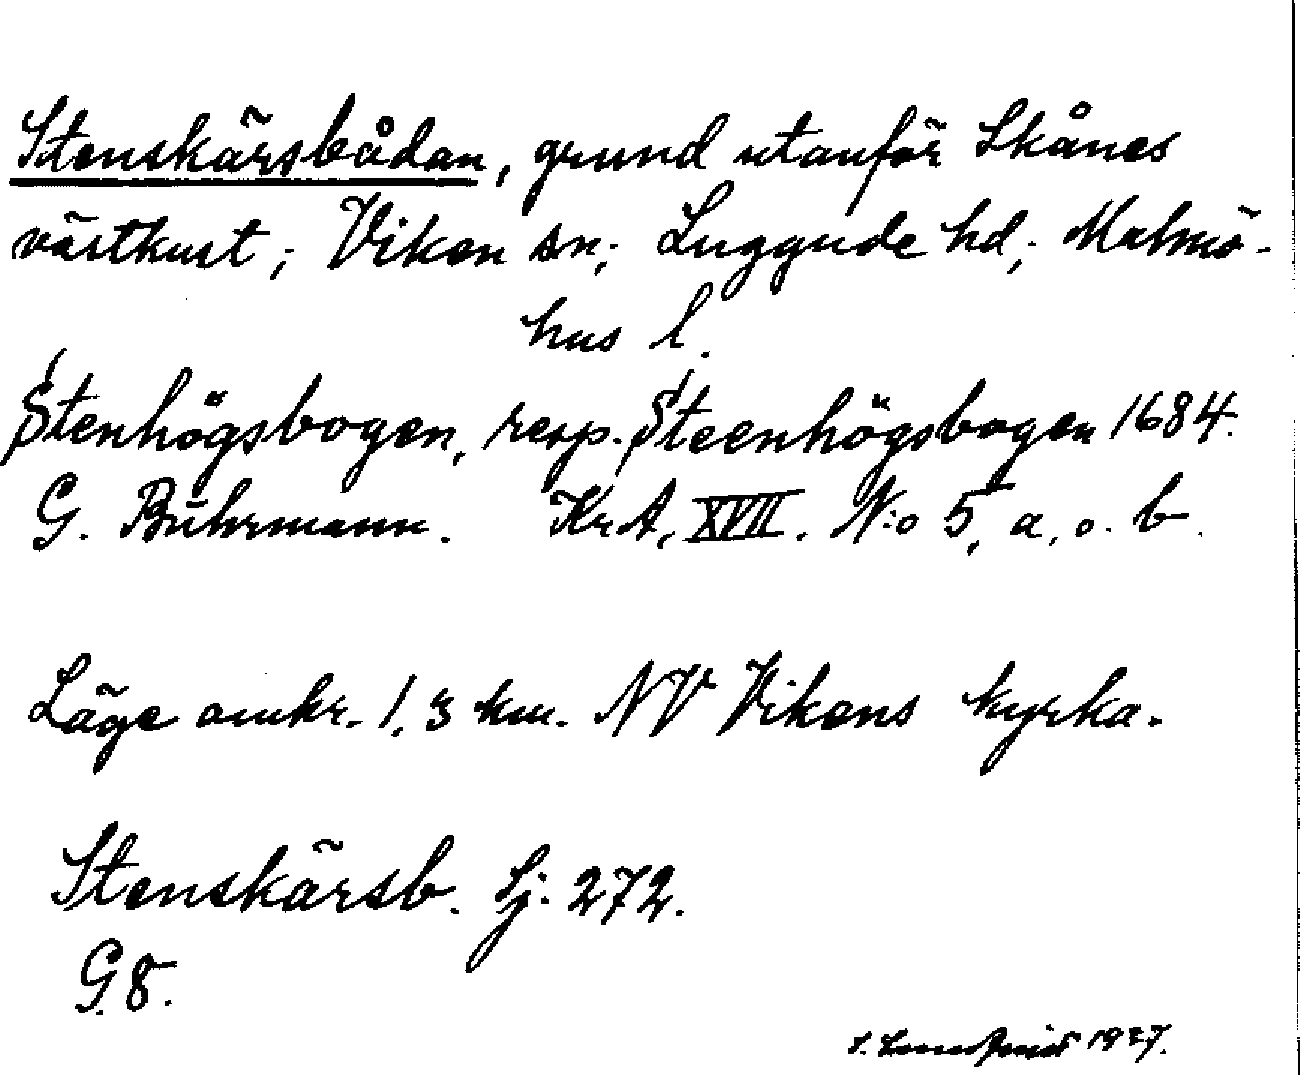 Stenskärsbådan, grund utanför Skånes
västkust; Viken sn; Luggude hd; Malmö-
hus l.
Stenhögsbogen, resp. Steenhögsbogen 1684.
G. Buhrmann. Kr. A. XVII. N:o 5, a. o. b.
Läge omkr. 1.3 km. NV Vikens kyrka.
Stenskärsb. Sj. 272.
G8.
1927.